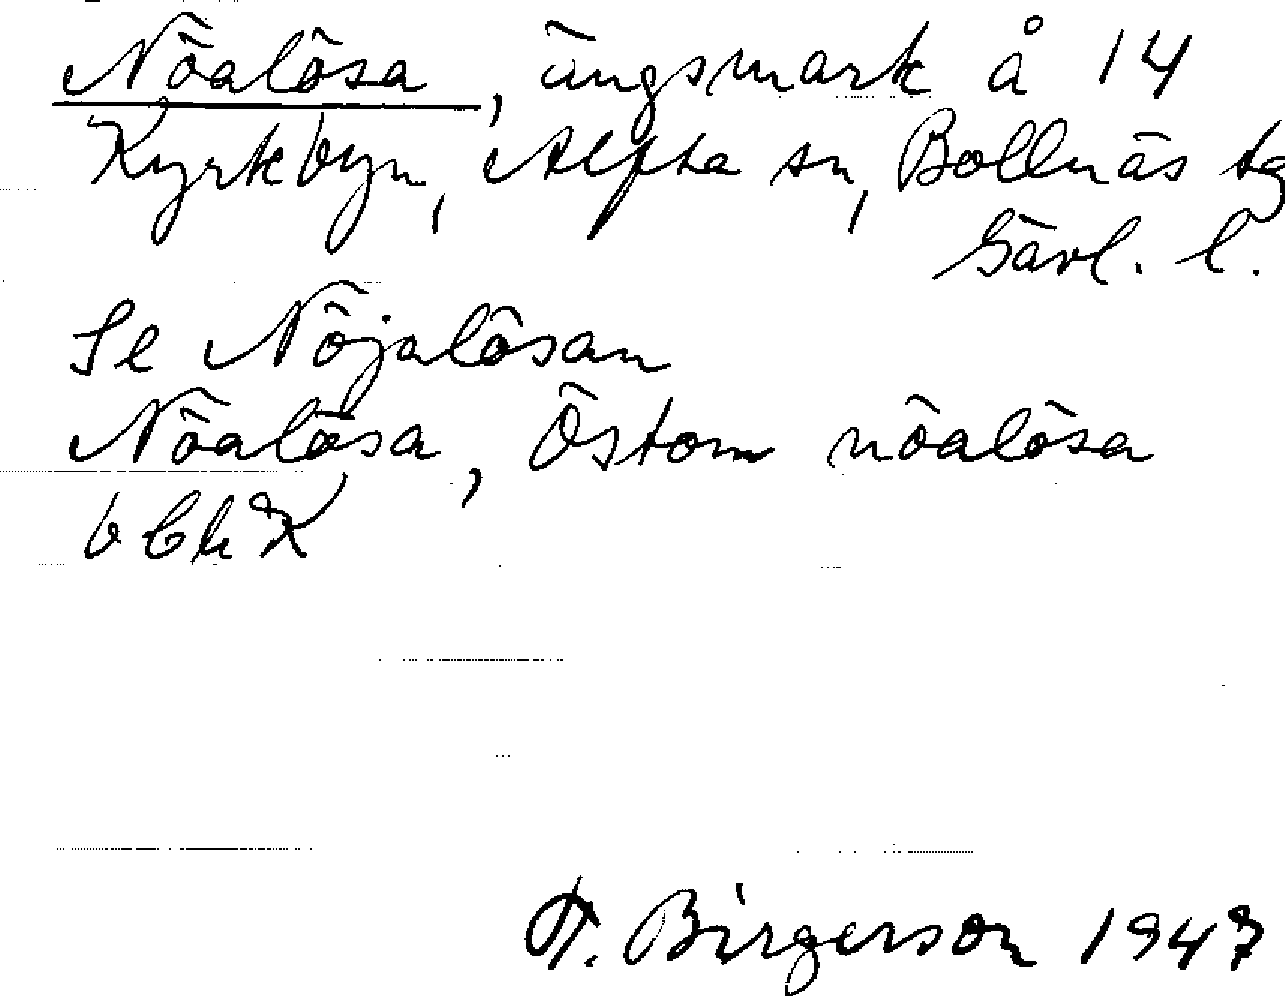 Nöalösa, ängsmark å 14
Kyrkbyn, Alfta sn, Bollnäs tg
Gävl. l.
Se Nöjalösan
Nöalösa, Östom nöalösa
F. Birgerson 1947